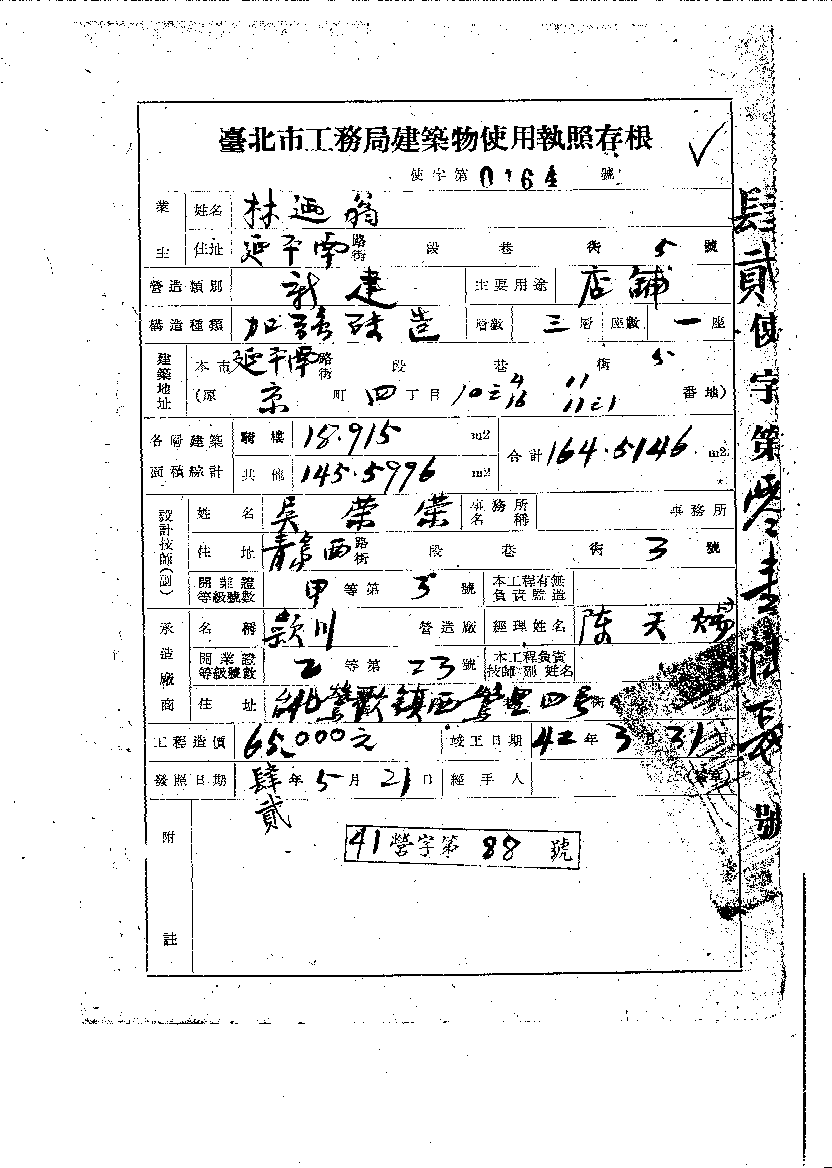 臺北市工務局建築物使用執照存根
使字第0164號
業主 姓名 林迺翁
住址 延平南路街 段 巷 街 5 號
營造類別 新建 主要用途 店舖
構造種類 加強磚造 層數 三層 座數 一座
建築地址 本市延平南路街 段 巷 街 5
(原 京 町 四丁目 10之4 16 11 11之1 番地)
各層建築面積綜計 騎樓 18.915 m2 合計 164.5146 m2
其他 145.5996 m2
設計技師(副) 姓名 吳榮榮 事務所名稱 事務所
住地 青島西路街 段 巷 街 3 號
開業證等級號數 甲等第 3 號 本工程有無負責監造
承造廠商 名稱 潁川 營造廠 經理姓名 陳天
開業證等級號數 乙等第 23 號 本工程負責技師(副)姓名
住址 鎮西 里四号
工程造價 65,000元 竣工日期 42年3月31日
發照日期 肆貳年5月21日 經手人 (簽章)
附註
41營字第88號
肆貳使字第零壹陸 號